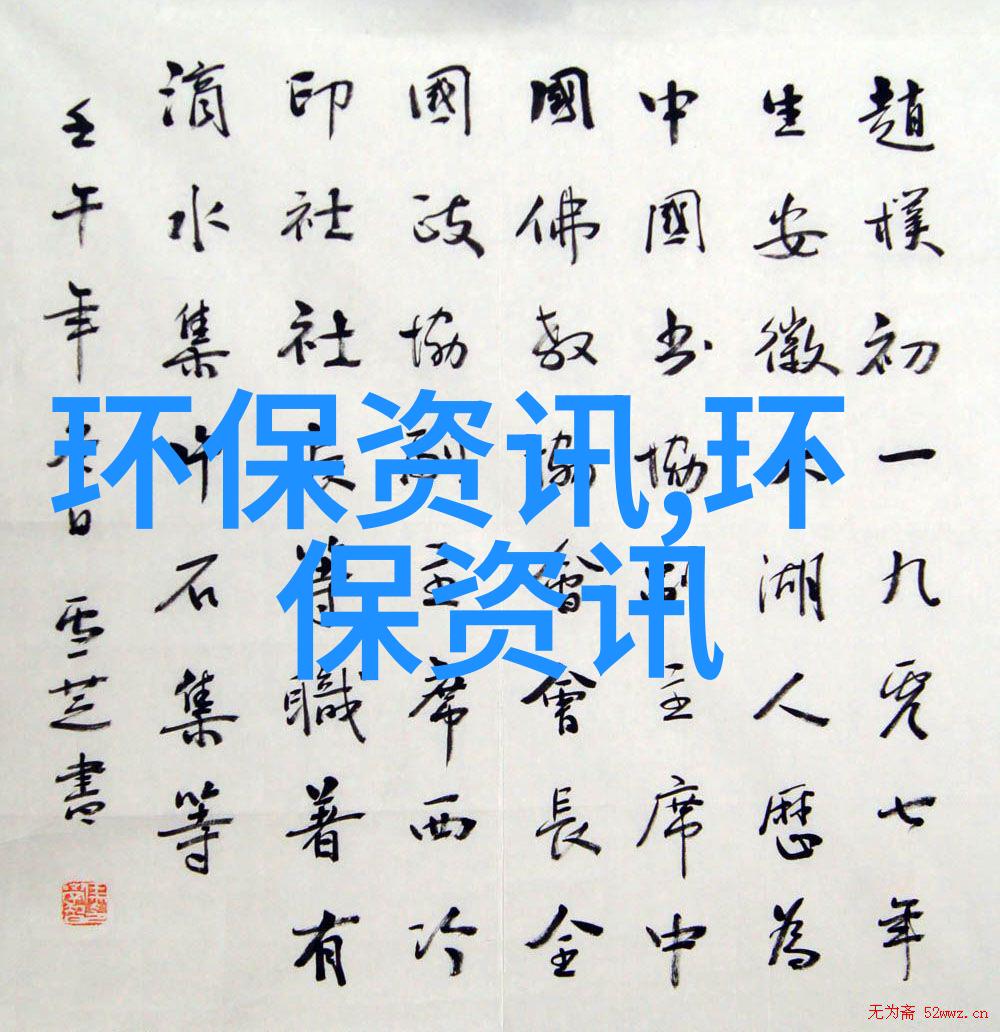 趙樸初一九零七年
生安徽太湖人歷為
中國书協副主席中
國佛教協會會長全
國政協副主席西泠
印社社長等職著有
滴水集片石集等
壬午年春日雪芝書
环保资讯,环
保资讯
无为斋 52wwz.cn